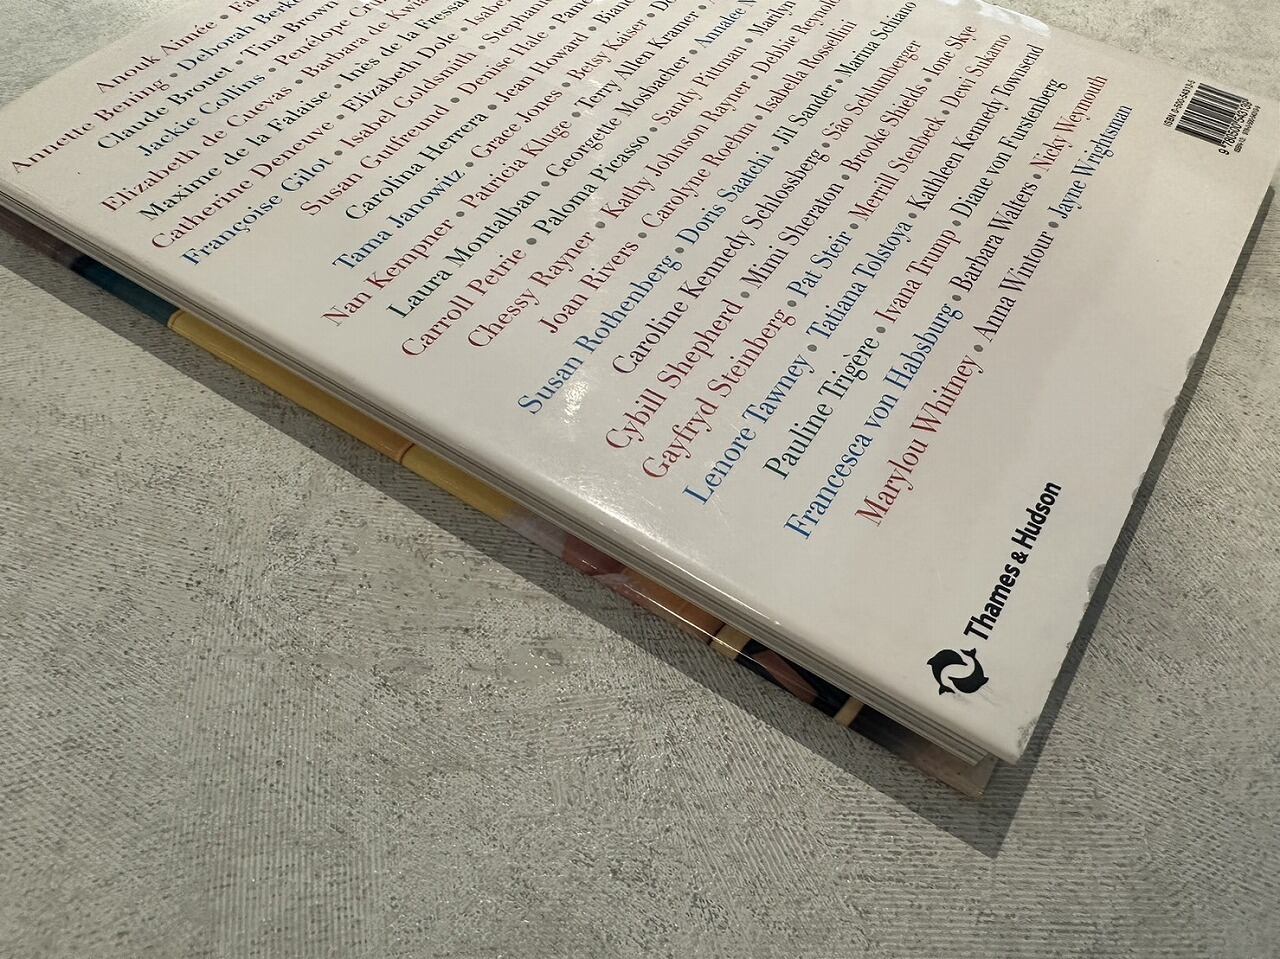 Anouk Aimée •
Annette Bening • Deborah
Claude Brouet • Tina Brown
Jackie Collins • Penélope
Elizabeth de Cuevas • Barbara de
Maxime de la Falaise • Inès de la Fressan
Catherine Deneuve • Elizabeth Dole •
Françoise Gilot • Isabel Goldsmith • Stephan
Susan Gutfreund • Denise Hale •
Carolina Herrera • Jean Howard •
Tama Janowitz • Grace Jones • Betsy Kaiser •
Nan Kempner • Patricia Kluge • Terry Allen Kramer •
Laura Montalban • Georgette Mosbacher • Annalee
Carroll Petrie • Paloma Picasso • Sandy Pittman • Marilyn
Chessy Rayner • Kathy Johnson Rayner • Debbie Reynold
Joan Rivers • Carolyne Roehm • Isabella Rossellini
Susan Rothenberg • Doris Saatchi • Jil Sander • Marina Schiano
Caroline Kennedy Schlossberg • São Schlumberger
Cybill Shepherd • Mimi Sheraton • Brooke Shields • Ione Skye
Gayfryd Steinberg • Pat Steir • Merrill Stenbeck • Dewi Sukarno
Lenore Tawney • Tatiana Tolstoya • Kathleen Kennedy Townsend
Pauline Trigère • Ivana Trump • Diane von Furstenberg
Francesca von Habsburg • Barbara Walters • Nicky Weymouth
Marylou Whitney • Anna Wintour • Jayne Wrightsman
Thames & Hudson